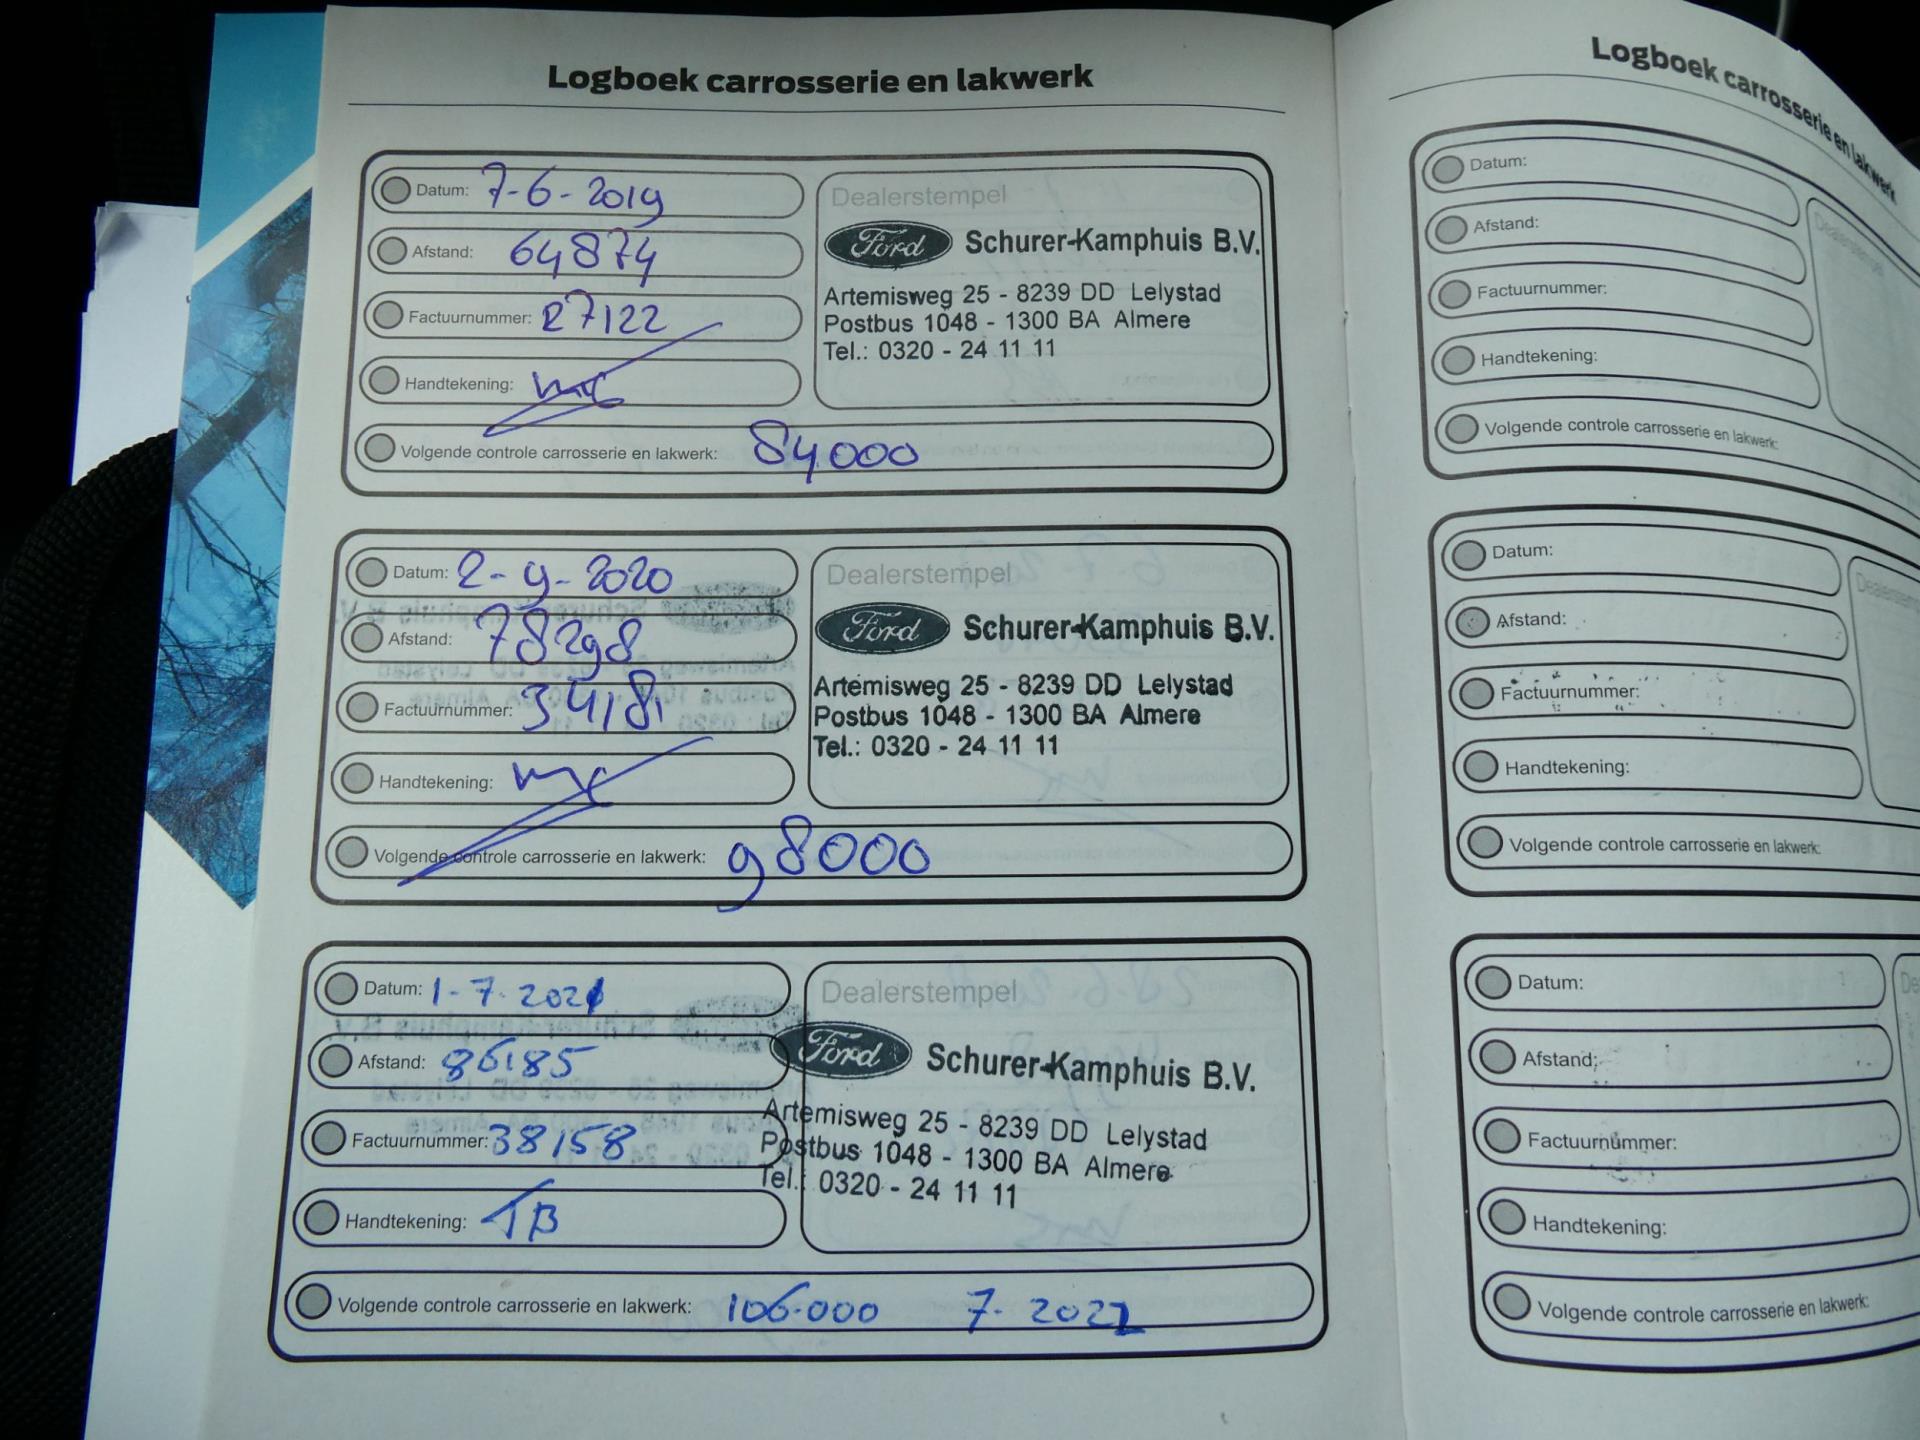 Logboek carrosserie en lakwerk
Datum: 7-6-2019
Afstand: 64874
Factuurnummer: 27122
Handtekening:
Volgende controle carrosserie en lakwerk: 84.000
Dealerstempel
Ford Schurer-Kamphuis B.V.
Artemisweg 25 - 8239 DD Lelystad
Postbus 1048 - 1300 BA Almere
Tel.: 0320 - 24 11 11
Datum: 2-9-2020
Afstand: 78298
Factuurnummer: 34181
Handtekening:
Volgende controle carrosserie en lakwerk: 98000
Dealerstempel
Ford Schurer-Kamphuis B.V.
Artemisweg 25 - 8239 DD Lelystad
Postbus 1048 - 1300 BA Almere
Tel.: 0320 - 24 11 11
Datum: 1-7-2021
Afstand: 86185
Factuurnummer: 38158
Handtekening: TB
Volgende controle carrosserie en lakwerk: 106.000 7-2022
Dealerstempel
Ford Schurer-Kamphuis B.V.
Artemisweg 25 - 8239 DD Lelystad
Postbus 1048 - 1300 BA Almere
Tel.: 0320 - 24 11 11
Logboek carrosserie en lakwerk
Datum:
Afstand:
Factuurnummer:
Handtekening:
Volgende controle carrosserie en lakwerk:
Dealerstempel
Datum:
Afstand:
Factuurnummer:
Handtekening:
Volgende controle carrosserie en lakwerk:
Datum:
Afstand:
Factuurnummer:
Handtekening:
Volgende controle carrosserie en lakwerk: